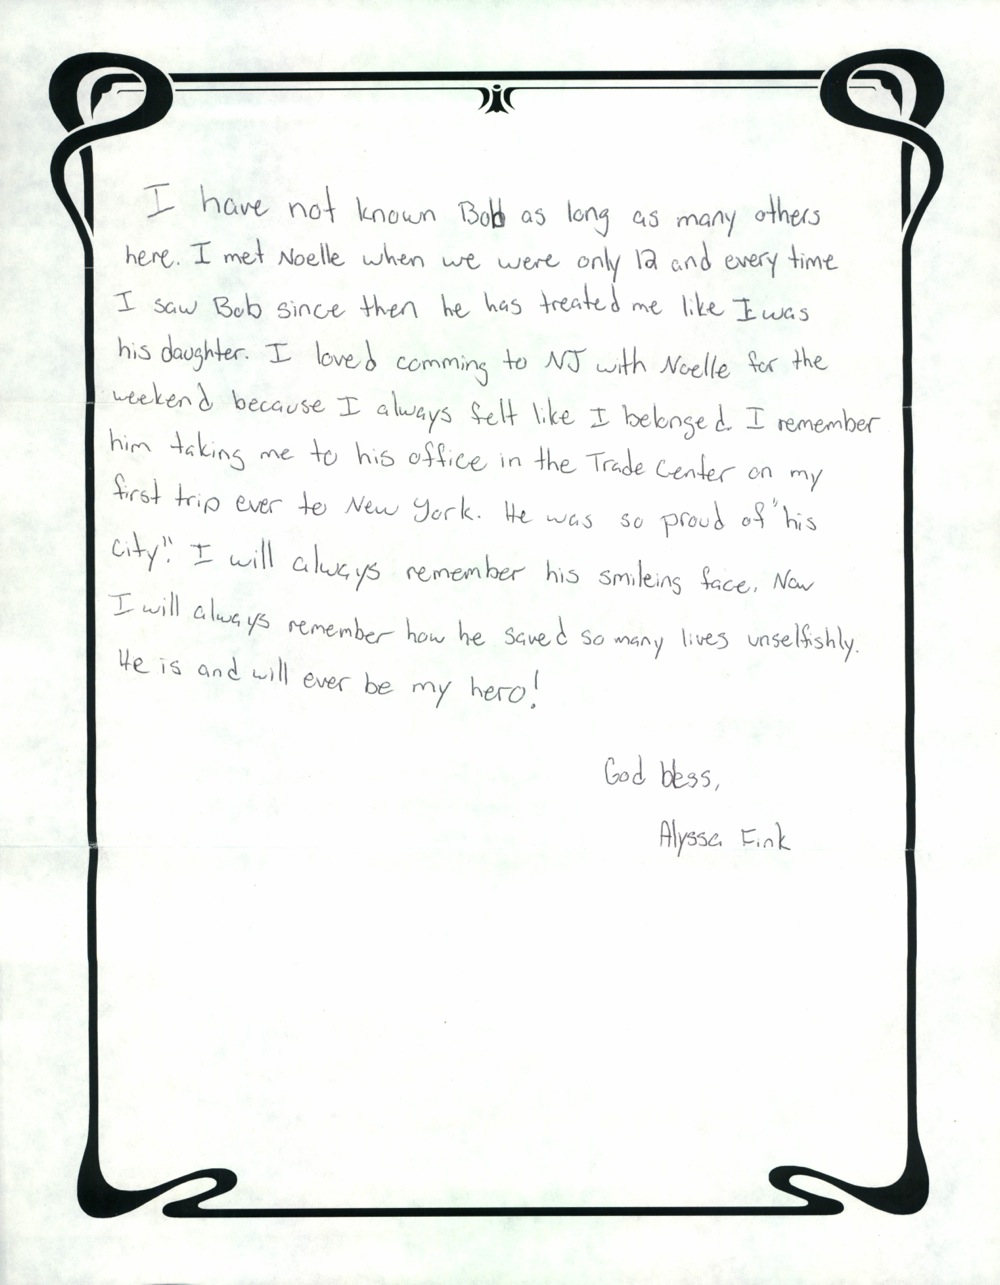 I have not known Bob as long as many others
here. I met Noelle when we were only 12 and every time
I saw Bob since then he has treated me like I was
his daughter. I loved comming to NJ with Noelle for the
weekend because I always felt like I belonged. I remember
him taking me to his office in the Trade Center on my
first trip ever to New York. He was so proud of "his
city". I will always remember his smileing face. Now
I will always remember how he saved so many lives unselfishly.
He is and will ever be my hero!
God bless,
Alyssa Fink